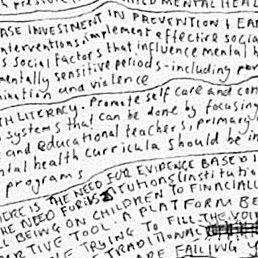 CHILD MENTAL HEAL
ASE INVESTMENT IN PREVENTION + EA
interventions, implement effective socia
s social factors that influence mental h
mentally sensitive periods - including per
ination and violence
TH LITERACY. Promote self care and con
systems that can be done by focusing
and educational teachers, primary
ntal health curricula should be in
programs
HERE IS THE NEED FOR EVIDENCE BASED I
HE NEED FOR INSTITUTIONS (institution
LL BEING ON CHILDREN TO FINACIALL
ORTIVE TOOL. A PLATFORM BE
E TRYING TO FILL THE VOI
TRADITIONAL
ARE FAILING Y